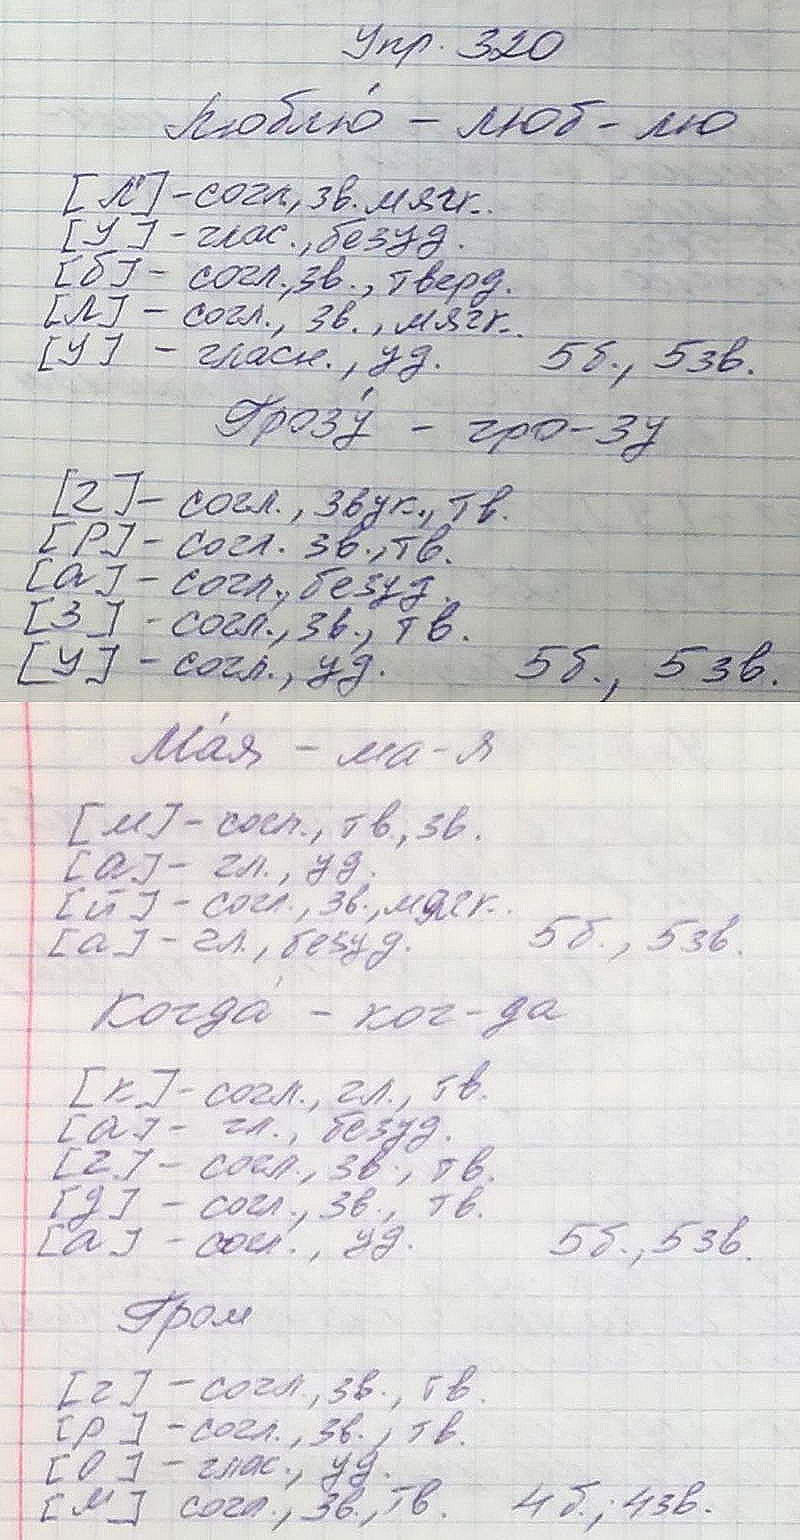 Упр. 320
Люблю́ – люб-лю
[Л'] – согл., зв. мягк.
[У] – глас., безуд.
[б] – согл., зв., тверд.
[Л] – согл., зв., мягк.
[У] – гласн., уд. 5б., 5зв.
Грозу́ – гро-зу
[г] – согл., звук., тв.
[Р] – согл. зв., тв.
[а] – согл., безуд.
[З] – согл., зв., тв.
[У] – согл., уд. 5б., 5зв.
Ма́я – ма-я
[м] – согл., тв, зв.
[а] – гл., уд.
[й] – согл., зв., мягк.
[а] – гл., безуд. 5б., 5зв.
Когда́ – ког-да
[к] – согл., гл., тв.
[а] – гл., безуд.
[г] – согл., зв., тв.
[д] – согл., зв., тв.
[а] – согл., уд. 5б., 5зв.
Гром
[г] – согл., зв., тв.
[р] – согл., зв., тв.
[о] – глас., уд.
[м] согл., зв., тв. 4б., 4зв.